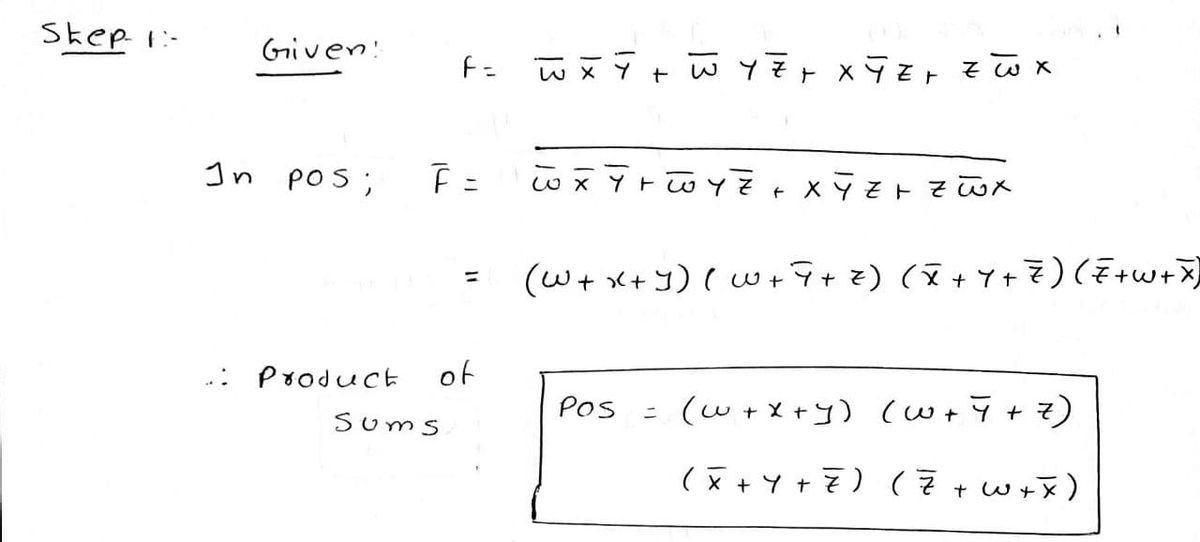 Step 1:-
Given:
f = w̅ x̅ y̅ + w̅ y z̅ + x y̅ z + z w̅ x
In POS; F̅ = \overline{w̅ x̅ y̅ + w̅ y z̅ + x y̅ z + z w̅ x}
= (w+x+y) (w+y̅+z) (x̅+y+z̅) (z̅+w+x̅)
∴ Product of
Sums
POS = (w+x+y) (w+y̅+z)
(x̅+y+z̅) (z̅+w+x̅)